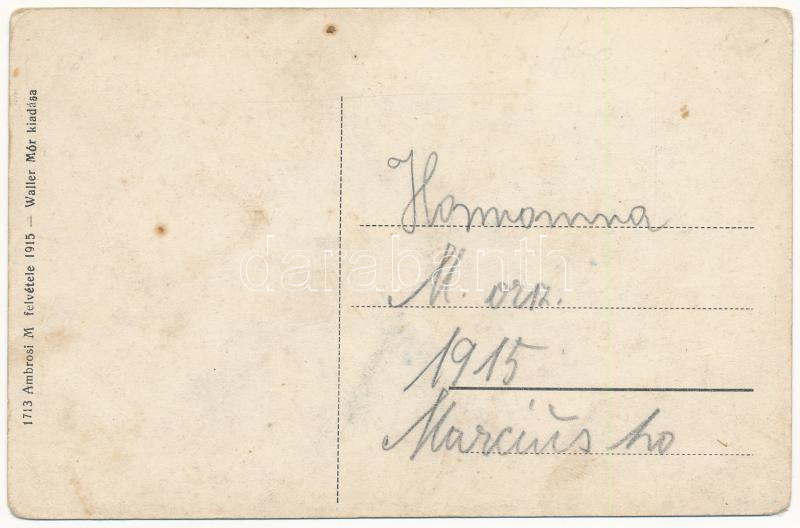 1713 Ambrosi M felvétele 1915 — Waller Mór kiadása
Homonna
M. orsz.
1915
Marcius ho
darabanth